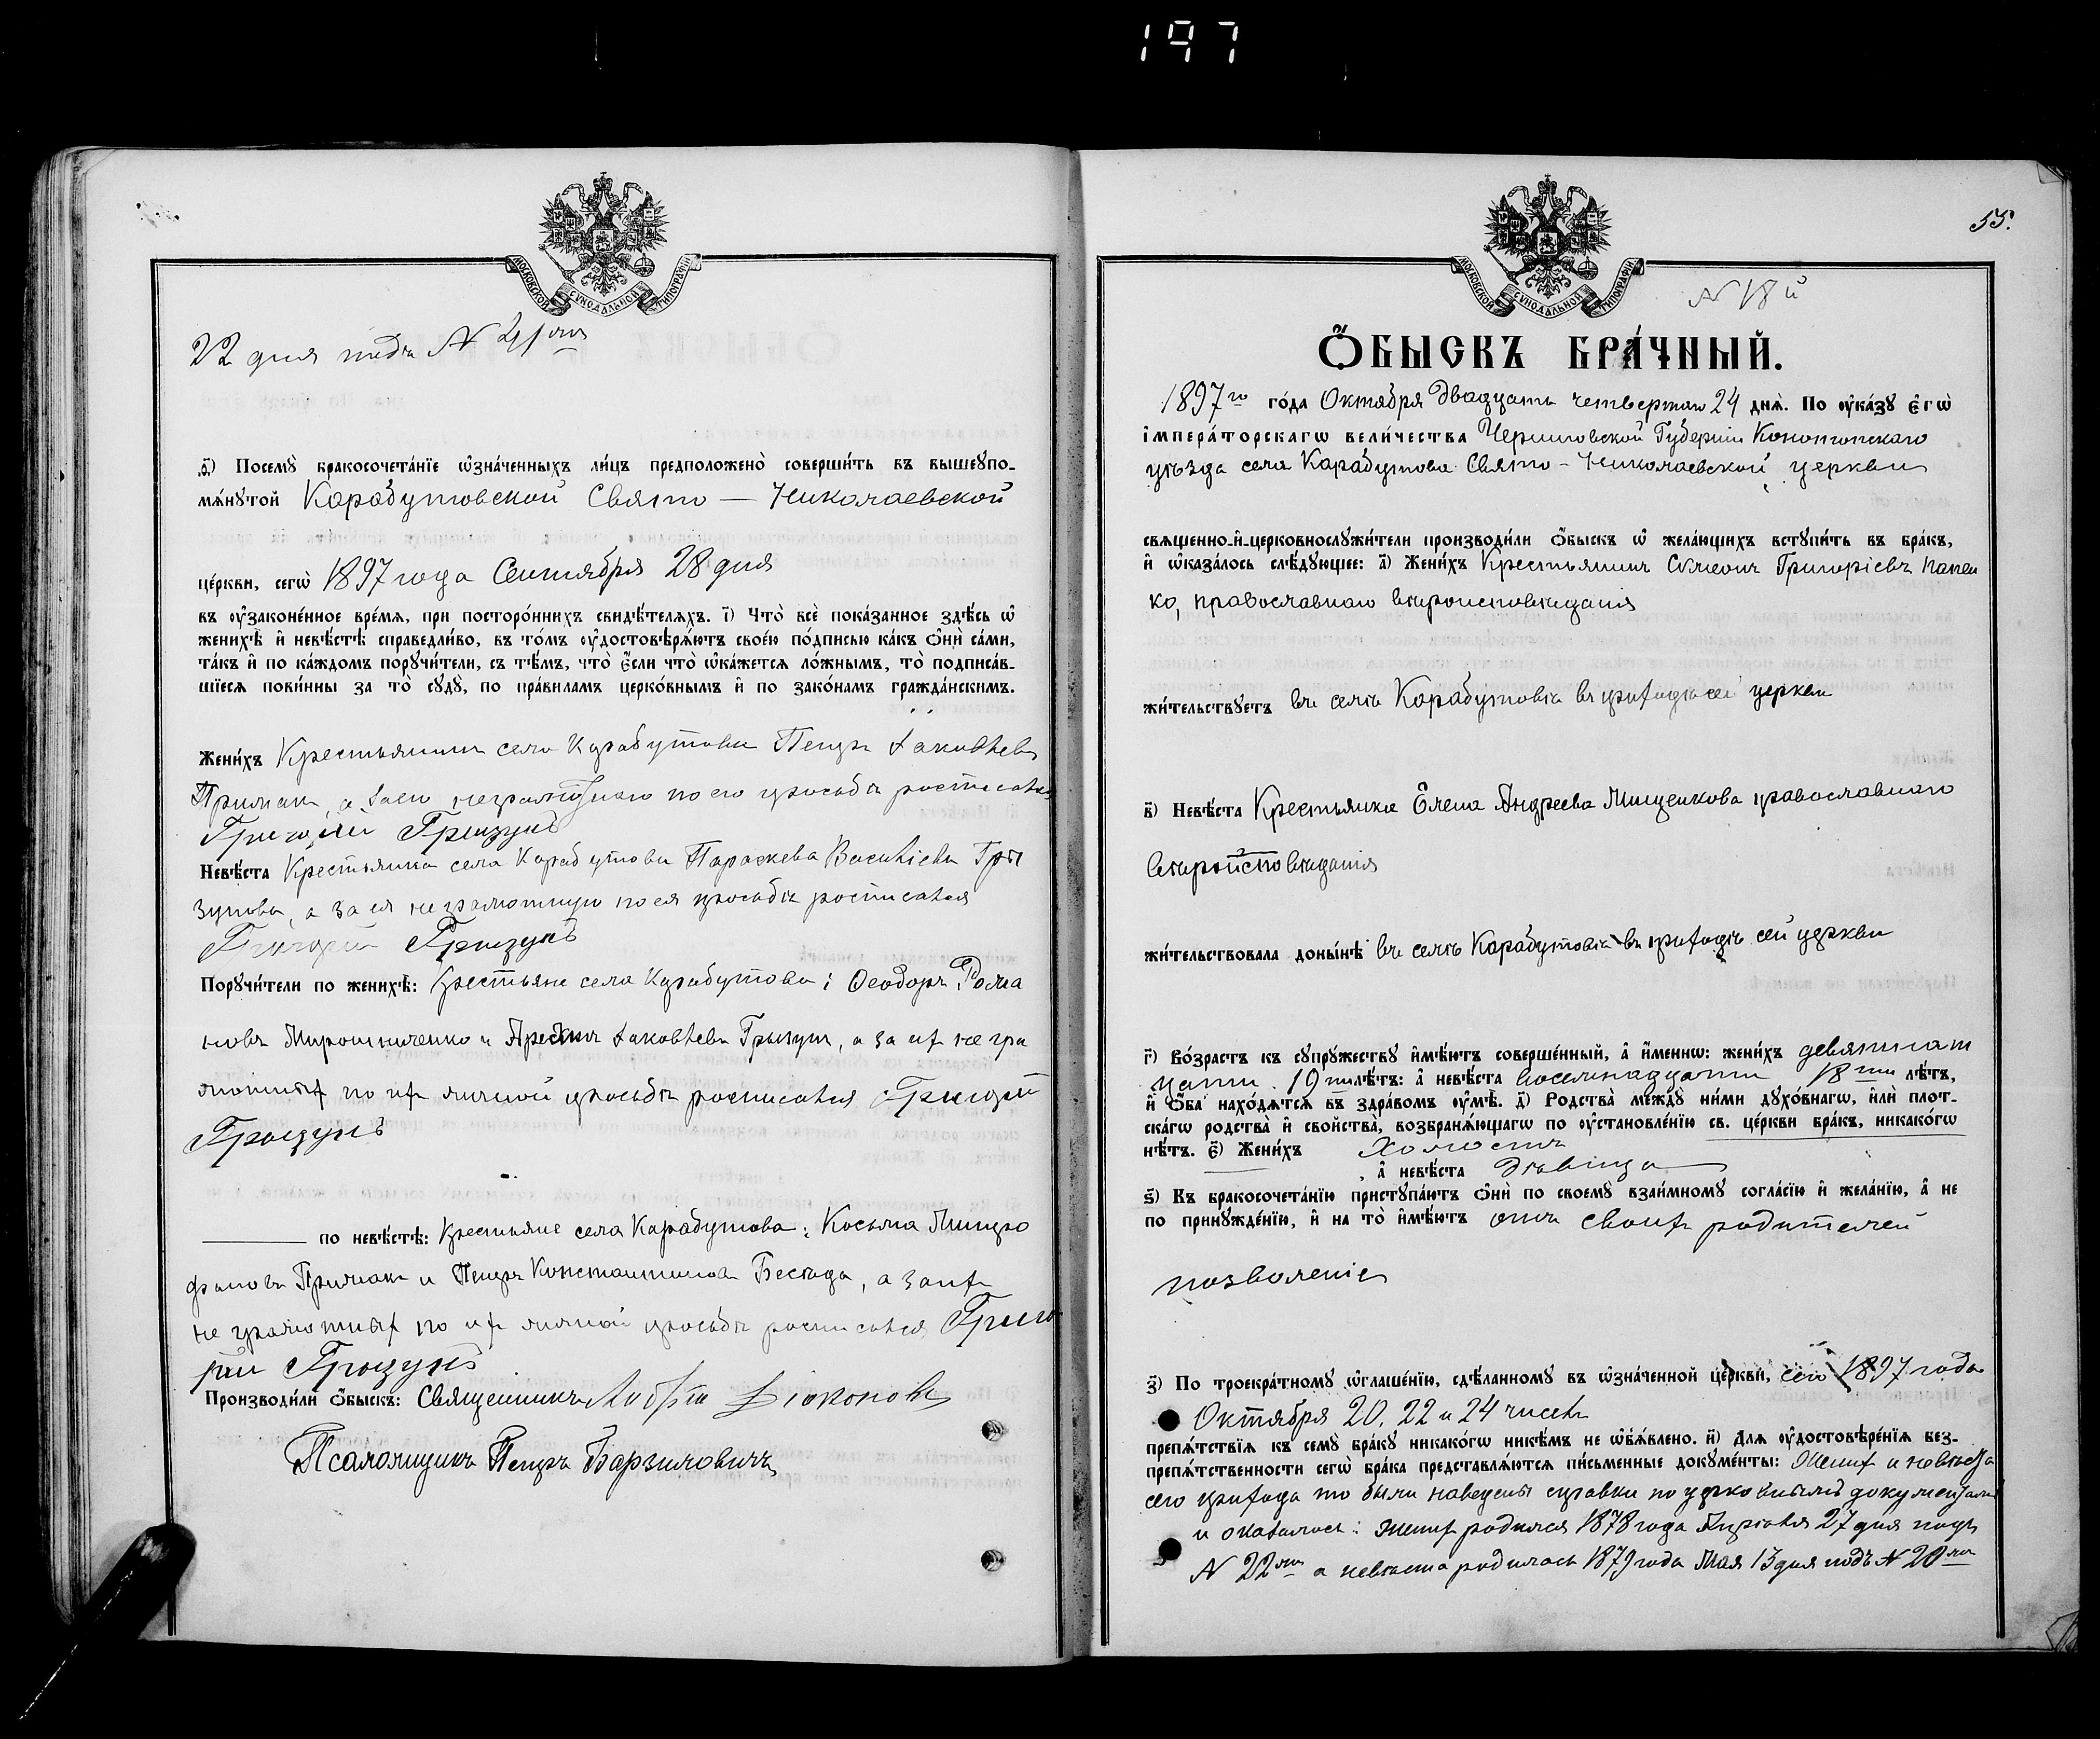 197
МОСКОВСКОЙ СѴНОДАЛЬНОЙ ТИПОГРАФІИ
22 дня подъ N
д҃) Посемꙋ̀ бракосочета́нїе ѡ҆зна́ченныхъ ли́цъ предположено̀ соверши́ть въ вышеꙋпо-
мѧ́нꙋтой Карабутовской Свято — Николаевской
це́ркви, сегѡ̀ 1897 года Сентября 28 дня
въ ᲂу҆зако́ненное вре́мѧ, при посторо́ннихъ свидѣ́телѧхъ. і҃) Что̀ всѐ пока́занное здѣ́сь ѡ҆
женихѣ̀ и҆ невѣ́стѣ справедли́во, въ то́мъ ᲂу҆достовѣрѧ́ютъ свое́ю по́дписью ка́къ ѻ҆нѝ са́ми,
та́къ и҆ по ка́ждомъ порꙋчи́тели, съ тѣ́мъ, что̀ є҆́сли что̀ ѡ҆ка́жетсѧ ло́жнымъ, то̀ подписа́в-
шїесѧ пови́нны за то̀ сꙋдꙋ̀, по пра́виламъ церко́внымъ и҆ по зако́намъ гражда́нскимъ.
Жени́хъ Крестьянинъ села Карабутова Петръ Іаковлевъ
Примакъ, а за его неграмотнаго по его просьбѣ росписался
Григорій Грызунъ
Невѣ́ста Крестьянка села Карабутова Параскева Васильева Гры
зунова, а за ея неграмотную по ея просьбѣ росписался
Григорій Грызунъ
Порꙋчи́тели по женихѣ̀: Крестьяне села Карабутова: Ѳеодоръ Рома
новъ Мирошниченко и Іаковлевъ Грызунъ, а за их негра
мотных по их личной просьбѣ росписался Григорій
Грызунъ
по невѣ́стѣ: Крестьяне села Карабутова: Косьма Митро
фановъ Примакъ и Петръ Константиновъ Бесѣда, а за их
не грамотных по их личной просьбѣ росписался Григо
рій Грызунъ
Производи́ли ѻ҆́быскъ: Священникъ Діаконовъ
Псаломщикъ Петръ Барзиловичъ
55.
МОСКОВСКОЙ СѴНОДАЛЬНОЙ ТИПОГРАФІИ
N 18й
Ѻ҆́БЫСКЪ БРА́ЧНЫЙ.
1897го го́да Октября двадцать четвертаго 24 днѧ̀. По ᲂу҆ка́зꙋ є҆гѡ̀
і҆мпера́торскагѡ вели́чества Черниговской Губерніи Конотопскаго
уѣзда села Карабутова Свято-Николаевской церкви
свѧще́нно-и҆-церковнослꙋжи́тели производи́ли ѻ҆́быскъ ѡ҆ жела́ющихъ встꙋпи́ть въ бра́къ,
и҆ ѡ҆каза́лось слѣ́дꙋющее: а҃) Жени́хъ Крестьянинъ Сѵмеонъ Григоріевъ Папен
ко, православнаго вѣроисповѣданія
жи́тельствꙋетъ въ селѣ Карабутовѣ въ приходѣ сей церкви
в҃) Невѣ́ста Крестьянка Елена Андреева Мищенкова православнаго
вѣроисповѣданія
жи́тельствовала доны́нѣ въ селѣ Карабутовѣ въ приходѣ сей церкви
г҃) Во́зрастъ къ сꙋпрꙋ́жествꙋ и҆мѣ́ютъ соверше́нный, а҆ и҆́меннѡ: жени́хъ девятнадт
цати 19ти лѣ́тъ: а҆ невѣ́ста восемнадцати 18ти лѣ́тъ,
и҆ ѻ҆́ба нахо́дѧтсѧ въ здра́вомъ ᲂу҆мѣ̀. д҃) Родства̀ междꙋ̀ ни́ми дꙋхо́внагѡ, и҆лѝ плот-
ска́гѡ родства̀ и҆ сво́йства, возбранѧ́ющагѡ по ᲂу҆становле́нїю св. це́ркви бра́къ, никако́гѡ
нѣ́тъ. є҃) Жени́хъ Холостъ
, а҆ невѣ́ста дѣвица
ѕ҃) Къ бракосочета́нїю пристꙋпа́ютъ ѻ҆нѝ по своемꙋ̀ взаи́мномꙋ согла́сїю и҆ жела́нїю, а҆ не
по принꙋжде́нїю, и҆ на то̀ и҆мѣ́ютъ отъ своих родителей
позволеніе
з҃) По троекра́тномꙋ ѡ҆глаше́нїю, сдѣ́ланномꙋ въ ѡ҆зна́ченной це́ркви, сего 1897 года
Октября 20, 22 и 24 чиселъ
препѧ́тствїѧ къ семꙋ̀ бра́кꙋ никако́гѡ никѣ́мъ не ѡ҆б̾ѧ́влено. и҃) Длѧ ᲂу҆достовѣре́нїѧ без-
препѧ́тственности сегѡ̀ бра́ка представлѧ́ютсѧ пи́сьменные докꙋме́нты: Жених и невѣста
сего прихода то были наведены справки по церковнымъ документамъ
и оказалось: жених родился 1878 года Апрѣля 27 дня подъ
N 22мъ а невѣста родилась 1879 года Мая 13 дня подъ N 20мъ